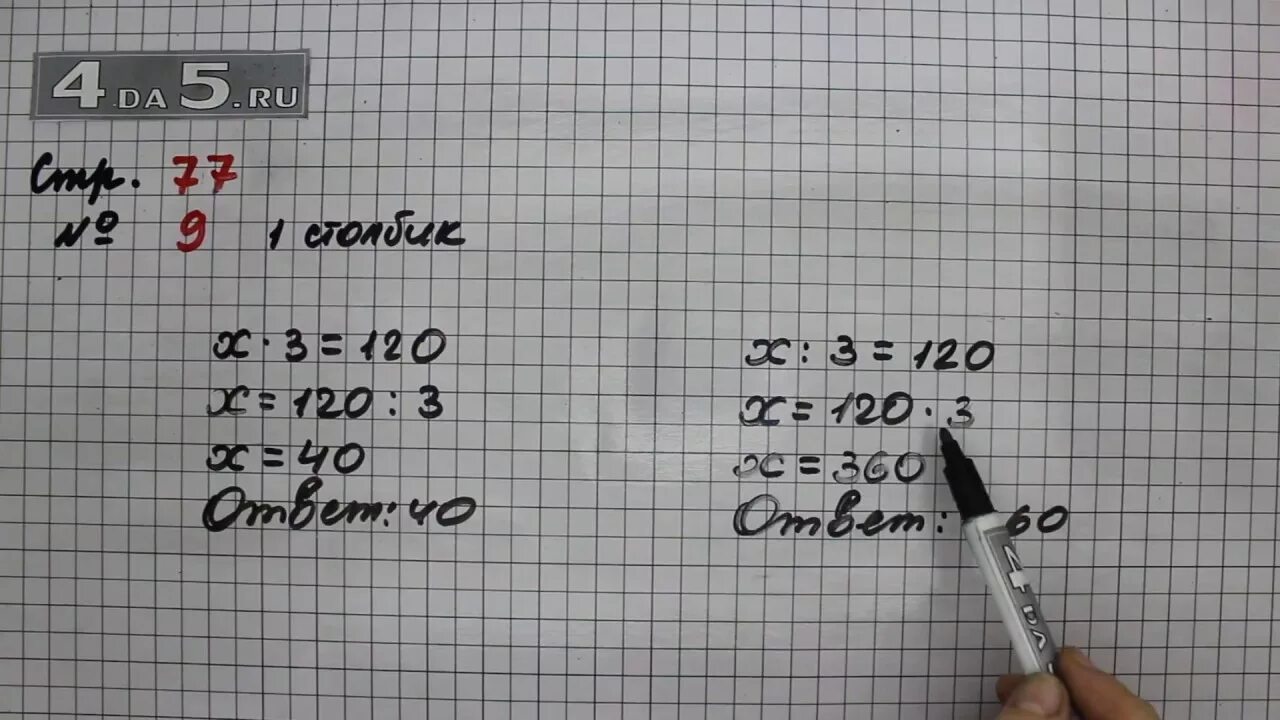 4.DA 5.RU
Стр. 77
№ 9 1 столбик
x · 3 = 120
x = 120 : 3
x = 40
Ответ: 40
x : 3 = 120
x = 120 · 3
x = 360
Ответ: 60
4 DA